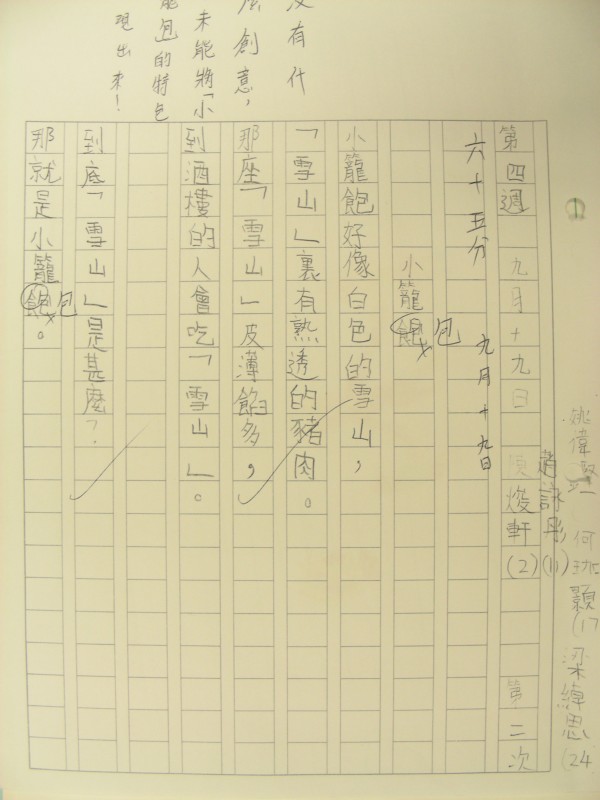 第四週 九月十九日 焌軒(2) 第二次
趙詠彤(11)
何 顥(17
梁緯思(24
六十五分 九月十九日
小籠飽 包
小籠飽好像白色的雪山,
「雪山」裏有熟透的豬肉。
那座「雪山」皮薄餡多,
到酒樓的人會吃「雪山」。
到底「雪山」是甚麼?
那就是小籠飽包。
沒有什
麼創意,
未能將「小
籠包的特色
現出來!